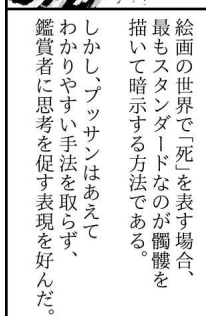 絵画の世界で「死」を表す場合、
最もスタンダードなのが髑髏を
描いて暗示する方法である。
しかし、プッサンはあえて
わかりやすい手法を取らず、
鑑賞者に思考を促す表現を好んだ。